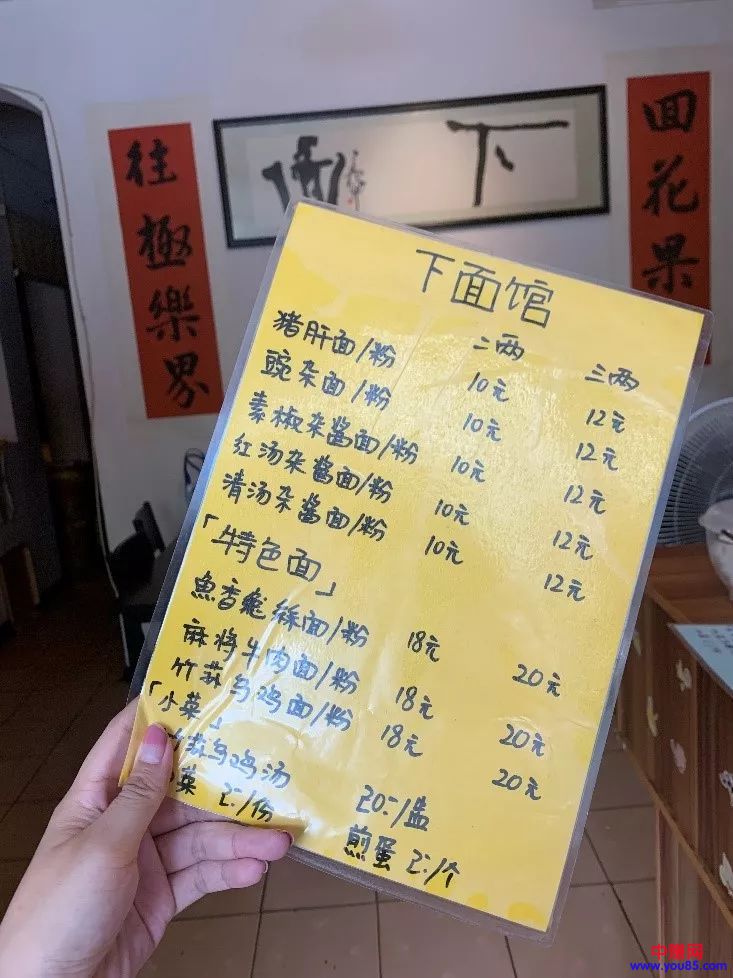 往極樂界
下
花果
下面馆
二两 三两
猪肝面/粉 10元 12元
豌杂面/粉 10元 12元
素椒杂酱面/粉 10元 12元
红汤杂酱面/粉 10元 12元
清汤杂酱面/粉 10元 12元
「特色面」
魚香 面/粉 18元 20元
麻将牛肉面/粉 18元 20元
竹荪乌鸡面/粉 18元 20元
「小菜」
荪乌鸡汤 20:/盅
菜 2:/份 煎蛋 2:/个
中赚网
www.you85.com